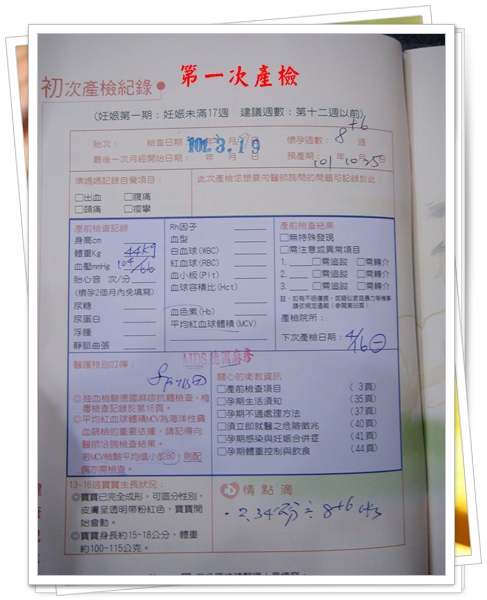 第一次產檢
初次產檢紀錄
(妊娠第一期：妊娠未滿17週 建議週數：第十二週以前)
始次： 檢查日期 101.3.19 懷孕週數： 8+6 週
最後一次月經開始日期： 年 月 日 預產期： 101 10 25
準媽媽記錄自覺項目：
□出血 □腹痛
□頭痛 □痙攣
此次產檢您想要向醫師詢問的問題可記錄於此：
產前檢查記錄
身高cm
體重Kg 44kg
血壓mmHg 104/66
胎心音 次/分
(懷孕2個月內免填寫)
尿糖
尿蛋白
浮腫
靜脈曲張
Rh因子
血型
白血球(WBC)
紅血球(RBC)
血小板(Plt)
血球容積比(Hct)
血色素(Hb)
平均紅血球體積(MCV)
AIDS 德國麻疹
產前檢查結果
□無特殊發現
□需注意或異常項目
1. □需追蹤 □需轉介
2. □需追蹤 □需轉介
3. □需追蹤 □需轉介
產檢院所：
下次產檢日期： 4/16 ㊀
醫護特別叮嚀：
◎抽血檢驗德國麻疹抗體檢查、梅
毒檢查記錄於第16頁。
◎平均紅血球體積MCV為海洋性貧
血篩檢的重要依據，請記得向
醫師洽詢檢查結果。
若MCV檢驗平均值小於80，則配
偶亦需檢查。
關心的衛教資訊
□產前檢查項目 ( 3頁)
□孕期生活須知 (35頁)
□孕期不適處理方法 (37頁)
□須立即就醫之危險徵兆 (40頁)
□孕期感染與妊娠合併症 (41頁)
□孕期體重控制與飲食 (44頁)
13-16週寶寶生長狀況：
◎寶寶已完全成形，可區分性別，
皮膚呈透明帶粉紅色，寶寶開
始會動。
◎寶寶身長約15-18公分，體重
約100-115公克。
心情點滴
2.34公分 = 8+6